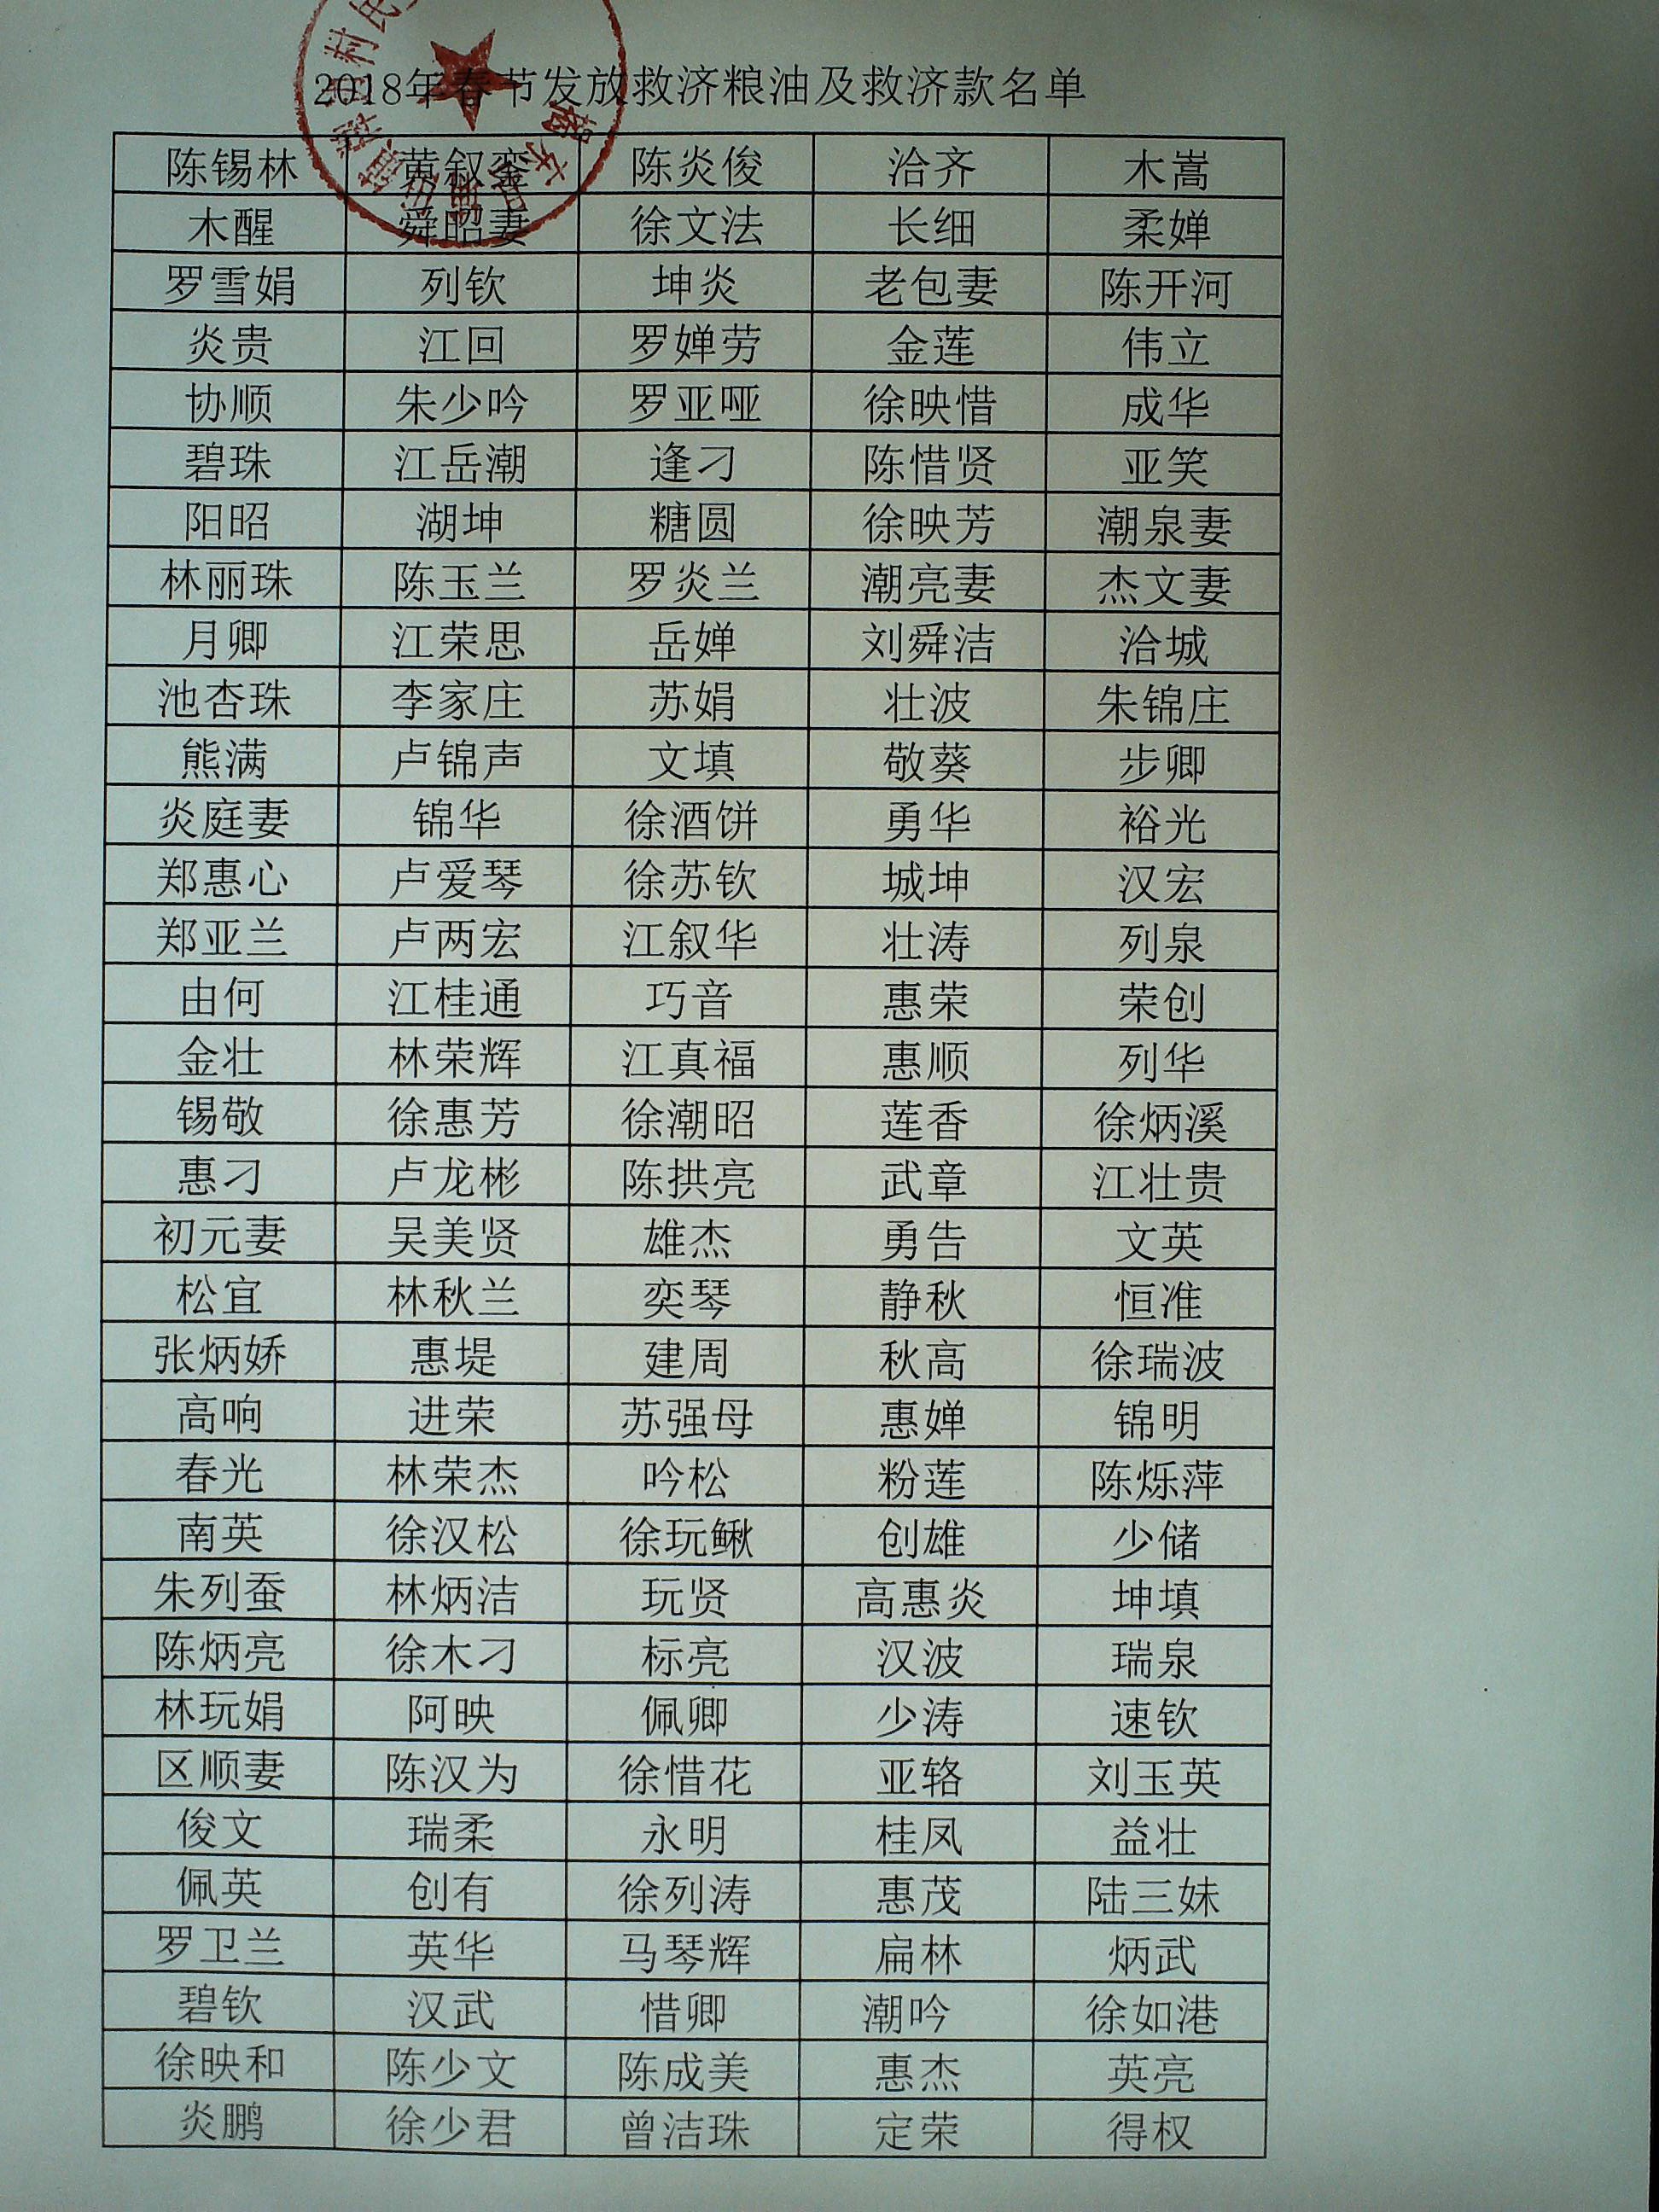 2018年春节发放救济粮油及救济款名单
陈锡林 黄叙銮 陈炎俊 洽齐 木嵩
木醒 舜昭妻 徐文法 长细 柔婵
罗雪娟 列钦 坤炎 老包妻 陈开河
炎贵 江回 罗婵劳 金莲 伟立
协顺 朱少吟 罗亚哑 徐映惜 成华
碧珠 江岳潮 逢刁 陈惜贤 亚笑
阳昭 湖坤 糖圆 徐映芳 潮泉妻
林丽珠 陈玉兰 罗炎兰 潮亮妻 杰文妻
月卿 江荣思 岳婵 刘舜洁 洽城
池杏珠 李家庄 苏娟 壮波 朱锦庄
熊满 卢锦声 文填 敬葵 步卿
炎庭妻 锦华 徐酒饼 勇华 裕光
郑惠心 卢爱琴 徐苏钦 城坤 汉宏
郑亚兰 卢两宏 江叙华 壮涛 列泉
由何 江桂通 巧音 惠荣 荣创
金壮 林荣辉 江真福 惠顺 列华
锡敬 徐惠芳 徐潮昭 莲香 徐炳溪
惠刁 卢龙彬 陈拱亮 武章 江壮贵
初元妻 吴美贤 雄杰 勇告 文英
松宜 林秋兰 奕琴 静秋 恒准
张炳娇 惠堤 建周 秋高 徐瑞波
高响 进荣 苏强母 惠婵 锦明
春光 林荣杰 吟松 粉莲 陈烁萍
南英 徐汉松 徐玩鳅 创雄 少储
朱列蚕 林炳洁 玩贤 高惠炎 坤填
陈炳亮 徐木刁 标亮 汉波 瑞泉
林玩娟 阿映 佩卿 少涛 速钦
区顺妻 陈汉为 徐惜花 亚辂 刘玉英
俊文 瑞柔 永明 桂凤 益壮
佩英 创有 徐列涛 惠茂 陆三妹
罗卫兰 英华 马琴辉 扁林 炳武
碧钦 汉武 惜卿 潮吟 徐如港
徐映和 陈少文 陈成美 惠杰 英亮
炎鹏 徐少君 曾洁珠 定荣 得权